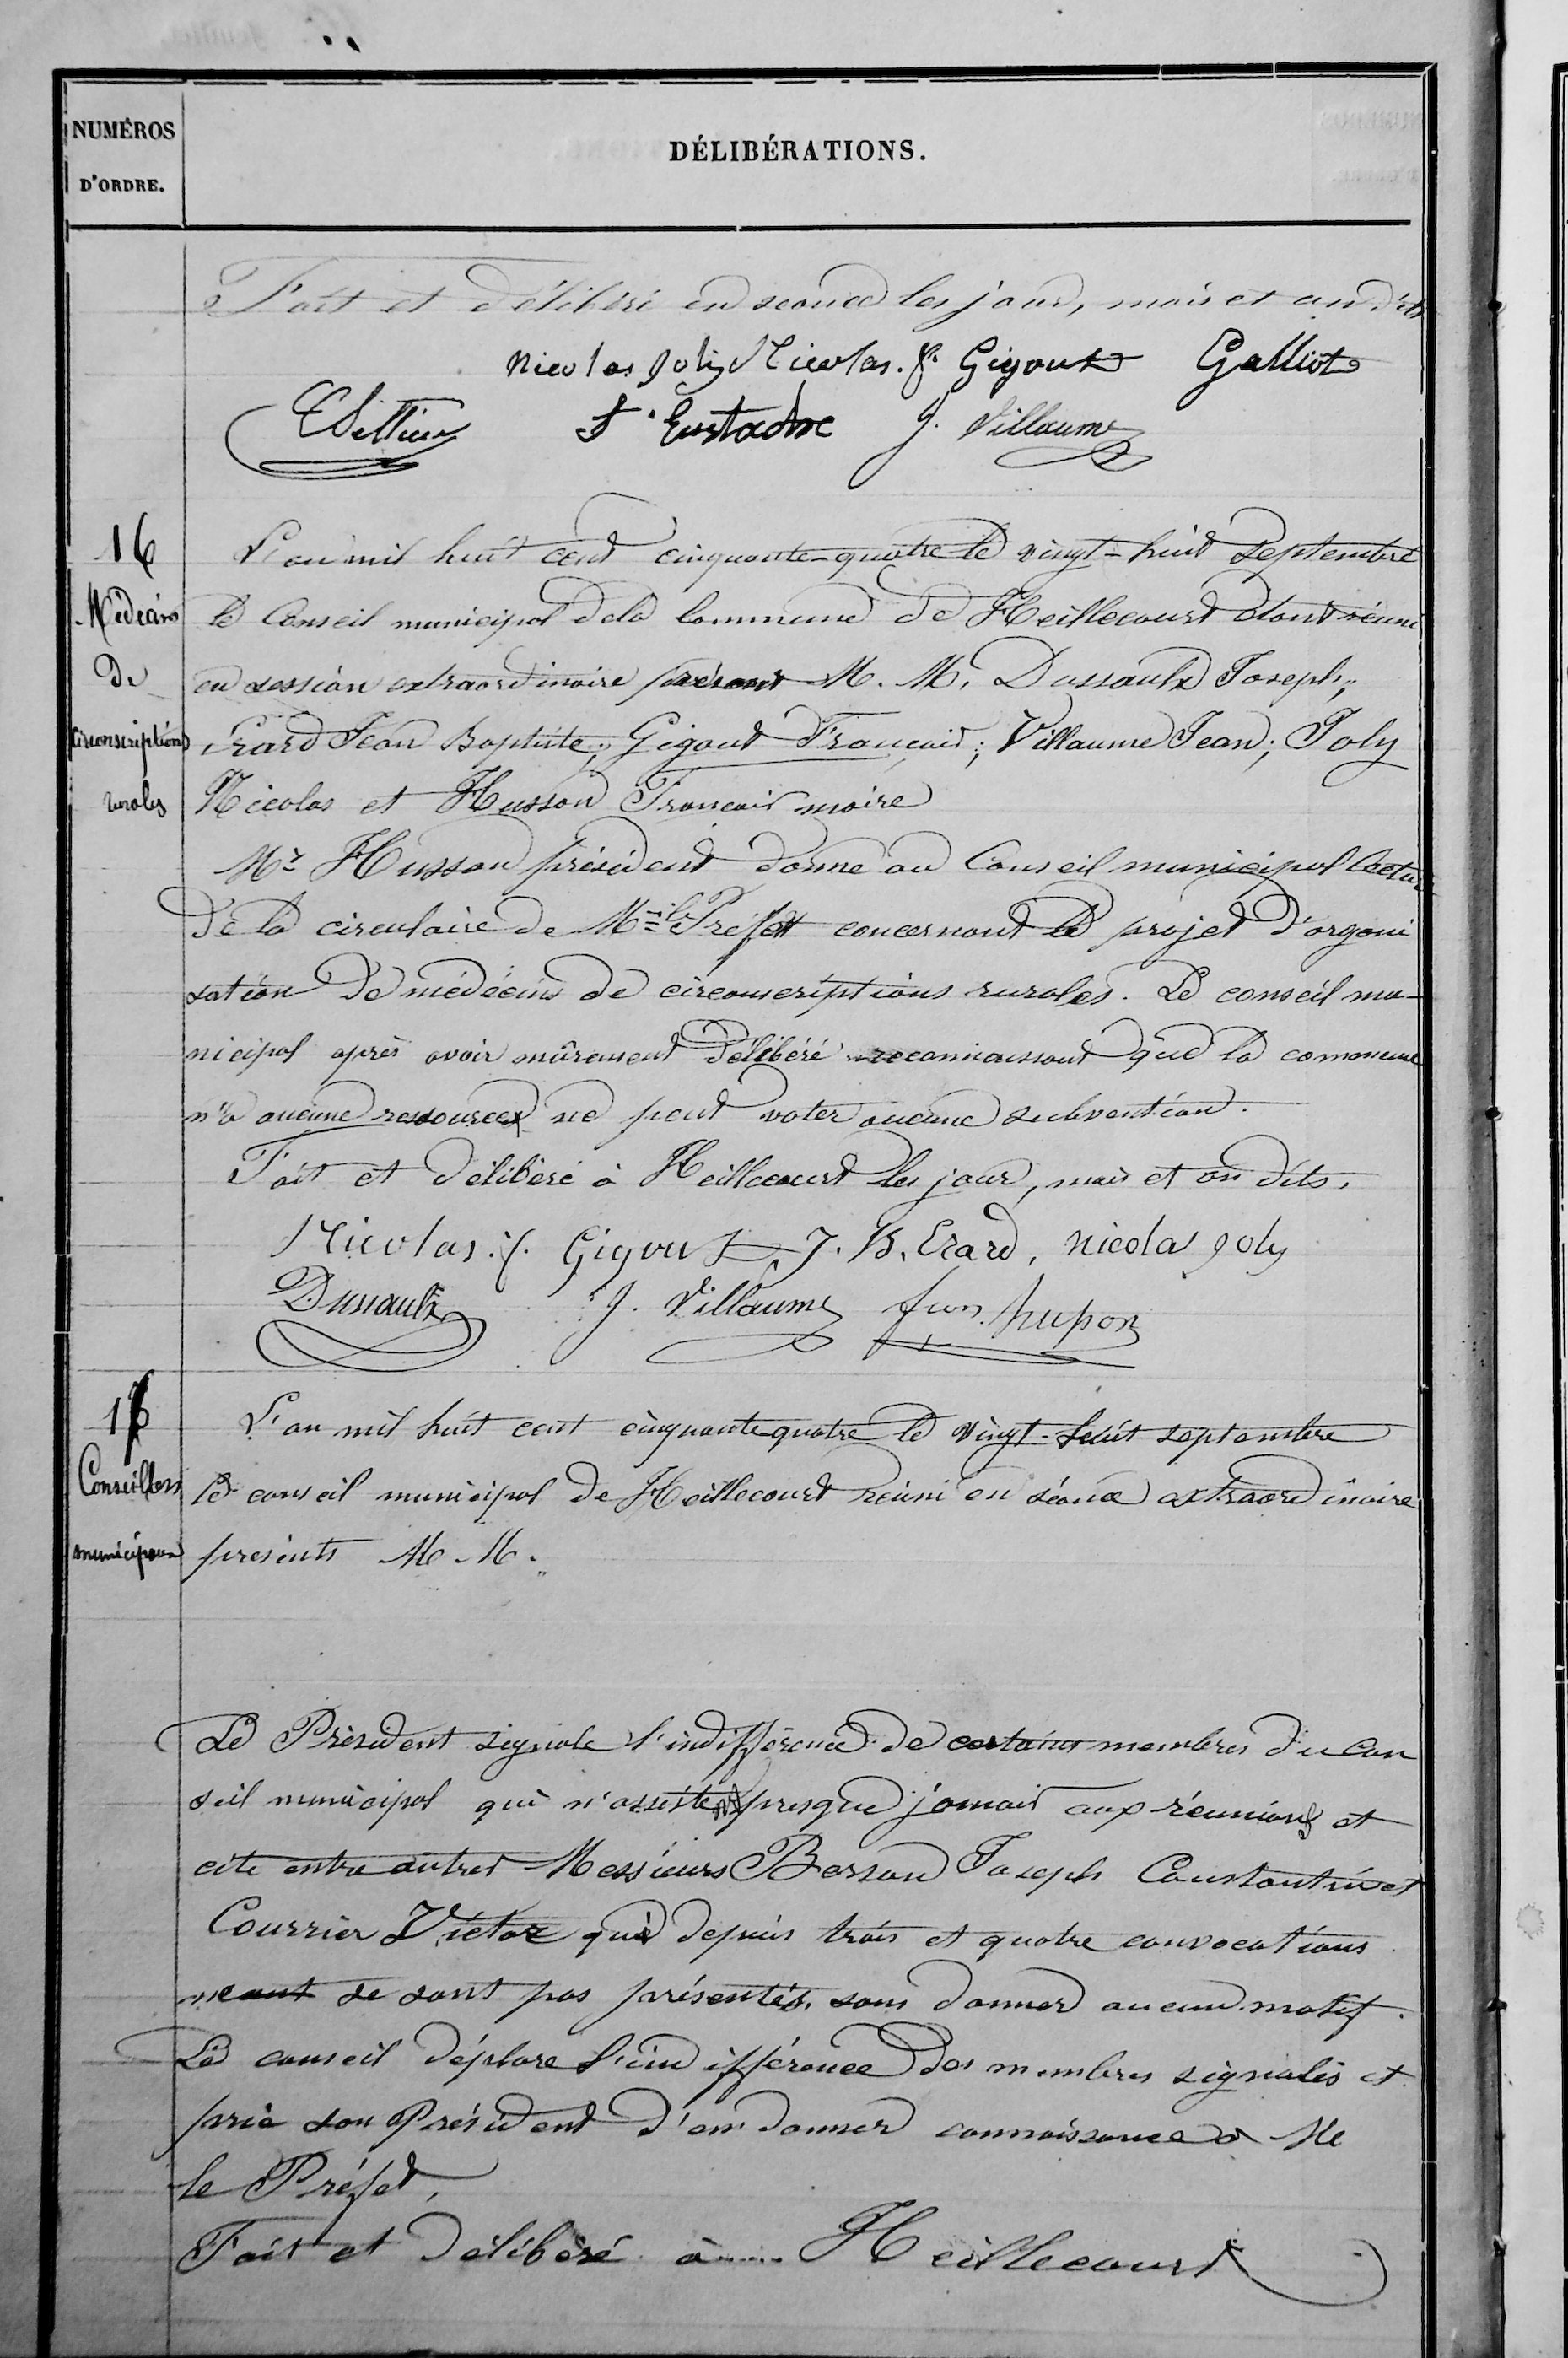 NUMÉROS
D'ORDRE.
DÉLIBÉRATIONS.
Fait et délibéré en séance les jour, mois et an dits
Nicolas Joly Nicolas. f. Gigout Galliot
F. Eustache J. Villaume
16
Médecins
de
circonscriptions
rurales
L'an mil huit cent cinquante-quatre le vingt-huit Septembre
le Conseil municipal de la commune de Heillecourt étant réuni
en session extraordinaire présents M. M. Dussaulx Joseph;
Erard Jean Baptiste; Gigout Français; Villaume Jean; Joly
Nicolas et Husson Français maire
Mr Husson président donne au Conseil municipal lecture
de la circulaire de Mr le Préfet concernant le projet d'organi
sation de médécins de circonscriptions rurales. Le conseil mu-
nicipal après avoir mûrement délibéré reconnaissant que la commune
n'a aucune ressources ne peut voter aucune subvention.
Fait et délibéré à Heillecourt les jour, mois et an dits.
Nicolas. f. Gigout, J. B. Erard, Nicolas Joly
Dussaulx J. Villaume fran. husson
17
Conseillers
municipaux
L'an mil huit cent cinquante quatre le vingt-huit septembre
le conseil municipal de Heillecourt réuni en séance extraordinaire
présents M. M.
Le Président signale l'indifférence de certains membres du con
seil municipal qui n'assistent presque jamais aux réunions et
cite entre autres Messieurs Berson Joseph Constantin et
Courrier Victor qui depuis trois et quatre convocations
ne se sont pas présentés, sans donner aucun motif.
Le conseil déplore l'indifférence des membres signalés et
prie son Président d'en donner connaissance à M
le Préfet,
Fait et délibéré à Heillecourt